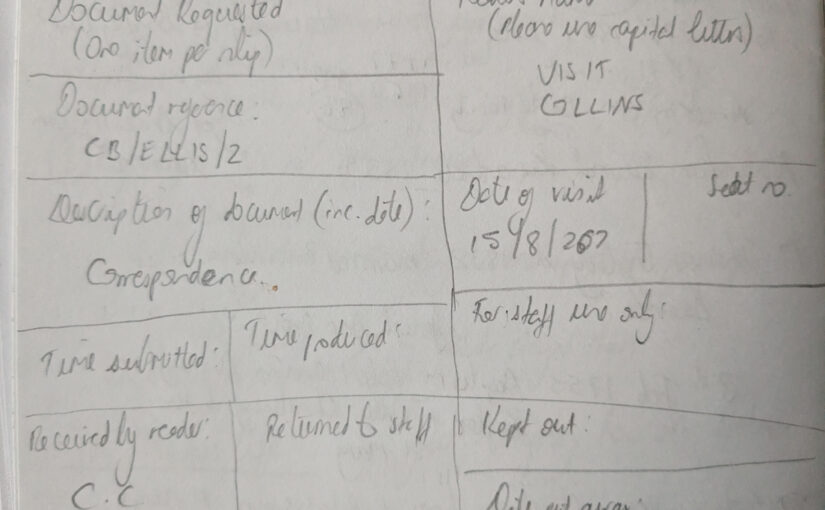 Document Requested
(One item per only)
(Please use capital letters)
VISIT
COLLINS
Document reference:
CB/ELLIS/2
Description of document (inc. date):
Correspondence..
Date of visit
Seat no.
Time submitted:
Time produced:
For staff use only:
Received by reader:
C.C
Returned to staff
Kept out: